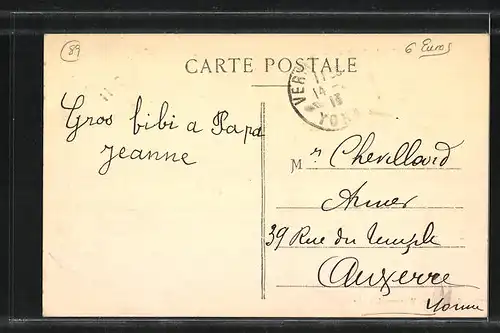 89
6 Euros
CARTE POSTALE
VER
14
13
YON
Gros bibi a Papa
Jeanne
Mr Chevillard
39 Rue du Temple
Auxerre
Yonne